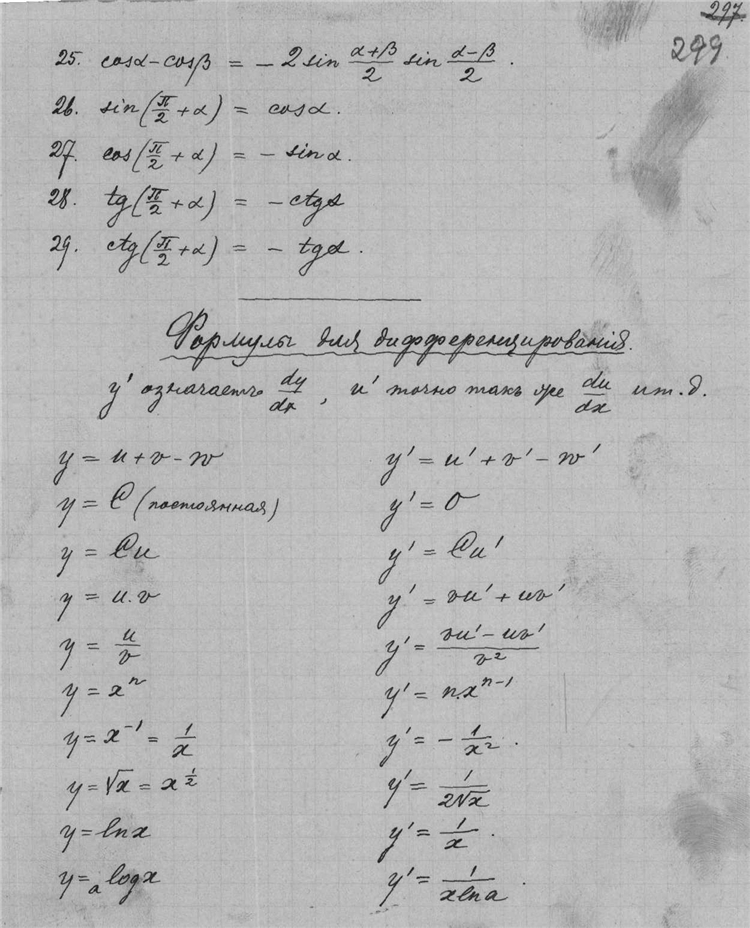 297.
299
25. cosα – cosβ = – 2 sin (α+β)/2 sin (α–β)/2 .
26. sin(π/2 + α) = cosα.
27. cos(π/2 + α) = – sinα.
28. tg(π/2 + α) = – ctgα
29. ctg(π/2 + α) = – tgα .
Формулы для дифференцированія.
y' означаетъ dy/dx , u' точно такъ же du/dx и т. д.
y = u + v – w y' = u' + v' – w'
y = C (постоянная) y' = 0
y = Cu y' = Cu'
y = u.v y' = vu' + uv'
y = u/v y' = (vu' – uv')/v²
y = xⁿ y' = nxⁿ⁻¹
y = x⁻¹ = 1/x y' = – 1/x² .
y = √x = x^(1/2) y' = 1/(2√x)
y = lnx y' = 1/x .
y = ₐlogx y' = 1/(x ln a) .